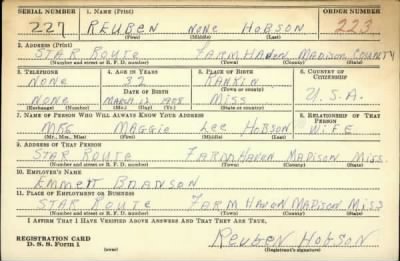 SERIAL NUMBER 1. NAME (Print) ORDER NUMBER
227 REUBEN NONE HOBSON 223
(First) (Middle) (Last)
2. ADDRESS (Print)
STAR ROUTE FARMHAVEN MADISON COUNTY
(Number and street or R. F. D. number) (Town) (County) (State)
3. TELEPHONE 4. AGE IN YEARS 5. PLACE OF BIRTH 6. COUNTRY OF CITIZENSHIP
NONE 32 RANKIN
DATE OF BIRTH (Town or county)
NONE MARCH 1908 MISS U.S.A.
(Exchange) (Number) (Mo.) (Day) (Yr.) (State or country)
7. NAME OF PERSON WHO WILL ALWAYS KNOW YOUR ADDRESS 8. RELATIONSHIP OF THAT PERSON
MRS MAGGIE LEE HOBSON WIFE
(Mr., Mrs., Miss) (First) (Middle) (Last)
9. ADDRESS OF THAT PERSON
STAR ROUTE FARMHAVEN MADISON MISS.
(Number and street or R. F. D. number) (Town) (County) (State)
10. EMPLOYER'S NAME
EMMETT BRANSON
11. PLACE OF EMPLOYMENT OR BUSINESS
STAR ROUTE FARMHAVEN MADISON MISS
(Number and street or R. F. D. number) (Town) (County) (State)
I AFFIRM THAT I HAVE VERIFIED ABOVE ANSWERS AND THAT THEY ARE TRUE.
REGISTRATION CARD
D. S. S. Form 1 (over) Reuben Hobson
(Registrant's signature)